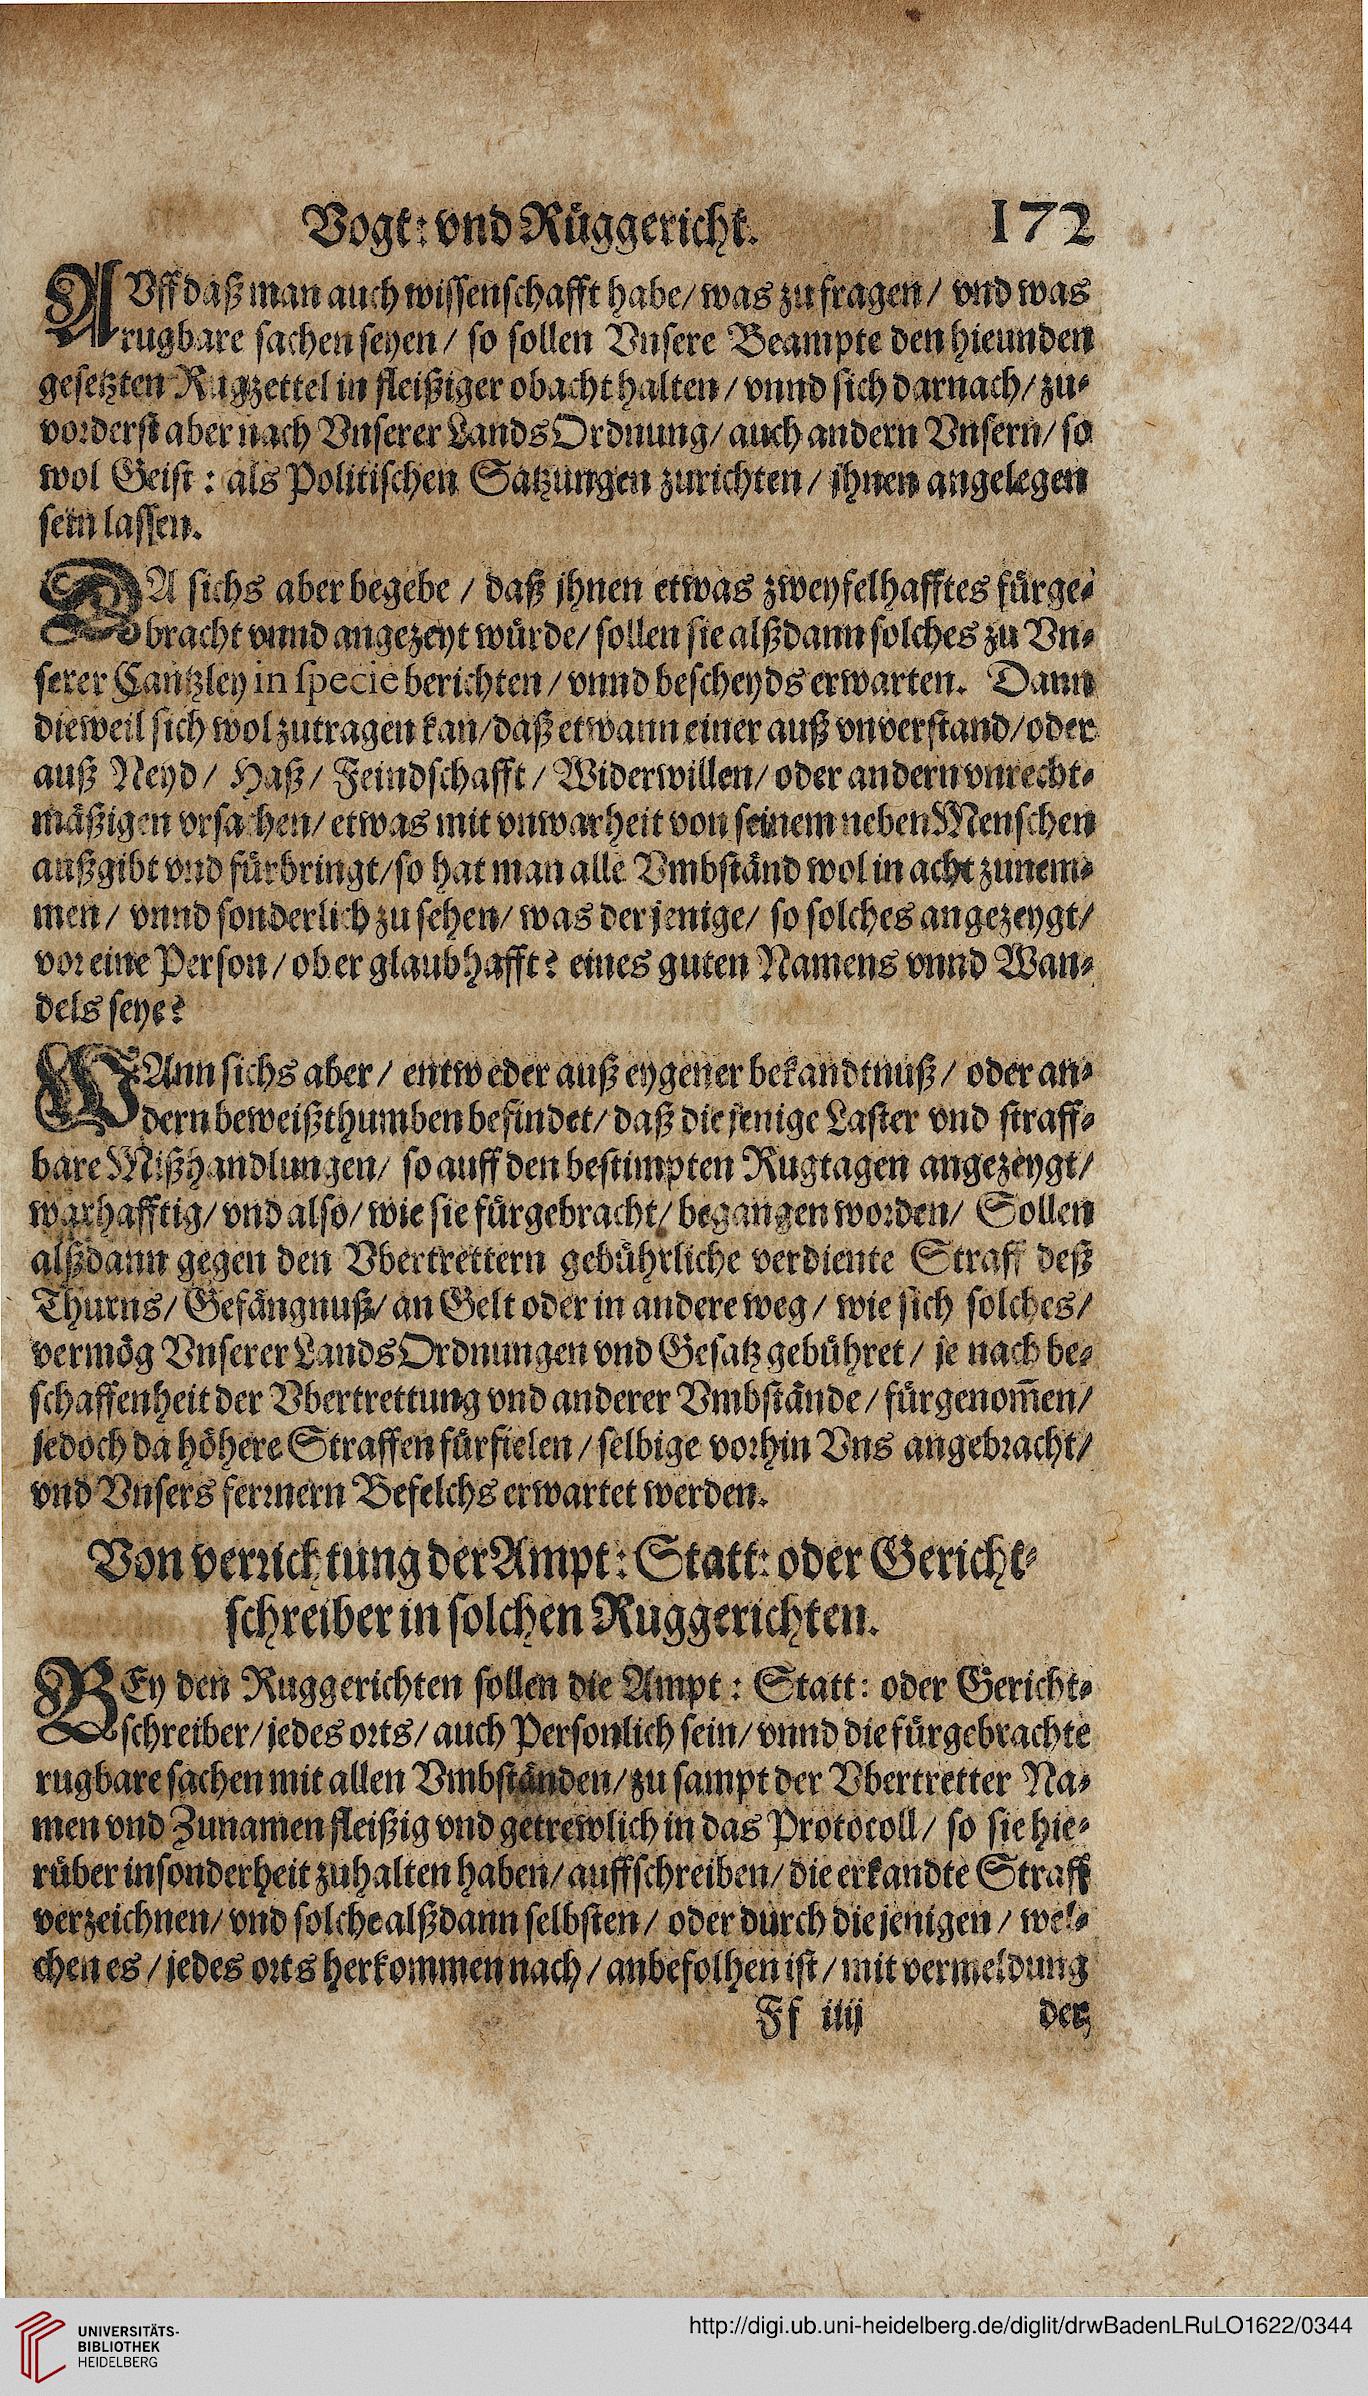 Vogt: vnd Rüggericht. 172
AVff daß man auch wissenschafft habe/ was zu fragen/ vnd was
rugbare sachen seyen/ so sollen Vnsere Beampte den hieunden
gesetzten Rugzettel in fleißiger obacht halten/ vnnd sich darnach/ zu-
vorderst aber nach Vnserer LandsOrdnung/ auch andern Vnsern/ so
wol Geist: als Politischen Satzungen zurichten/ jhnen angelegen
sein lassen.
DA sichs aber begebe/ daß jhnen etwas zweyfelhafftes fürge-
bracht vnnd angezeyt würde/ sollen sie alßdann solches zu Vn-
serer Cantzley in specie berichten/ vnnd bescheyds erwarten. Dann
dieweil sich wol zutragen kan/ daß etwann einer auß vnverstand/ oder
auß Neyd/ Haß/ Feindschafft/ Widerwillen/ oder andern vnrecht-
mäßigen vrsachen/ etwas mit vnwarheit von seinem neben Menschen
außgibt vnd fürbringt/ so hat man alle Vmbständ wol in acht zunem-
men/ vnnd sonderlich zu sehen/ was der jenige/ so solches angezeygt/
vor eine Person/ ob er glaubhafft? eines guten Namens vnnd Wan-
dels seye?
WAnn sichs aber/ entweder auß eygener bekandtnuß/ oder an-
dern beweißthumben befindet/ daß die jenige Laster vnd straff-
bare Mißhandlungen/ so auff den bestimpten Rugtagen angezeygt/
warhafftig/ vnd also/ wie sie fürgebracht/ begangen worden/ Sollen
alßdann gegen den Vbertrettern gebührliche verdiente Straff deß
Thurns/ Gefängnuß/ an Gelt oder in andere weg/ wie sich solches/
vermög Vnserer LandsOrdnungen vnd Gesatz gebühret/ je nach be-
schaffenheit der Vbertrettung vnd anderer Vmbstände/ fürgenom̃en/
jedoch da höhere Straffen fürfielen/ selbige vorhin Vns angebracht/
vnd Vnsers fermern Befelchs erwartet werden.
Von verrichtung der Ampt: Statt: oder Gericht-
schreiber in solchen Ruggerichten.
BEy den Ruggerichten sollen die Ampt: Statt: oder Gericht-
schreiber/ jedes orts/ auch Personlich sein/ vnnd die fürgebrachte
rugbare sachen mit allen Vmbständen/ zu sampt der Vbertretter Na-
men vnd Zunamen fleißig vnd getrewlich in das Protocoll/ so sie hie-
rüber insonderheit zuhalten haben/ auffschreiben/ die erkandte Straff
verzeichnen/ vnd solche alßdann selbsten/ oder durch die jenigen/ wel-
chen es/ jedes orts herkommen nach/ anbefolhen ist/ mit vermeldung
Ff iiij der
UNIVERSITÄTS-
BIBLIOTHEK
HEIDELBERG
http://digi.ub.uni-heidelberg.de/diglit/drwBadenLRuLO1622/0344